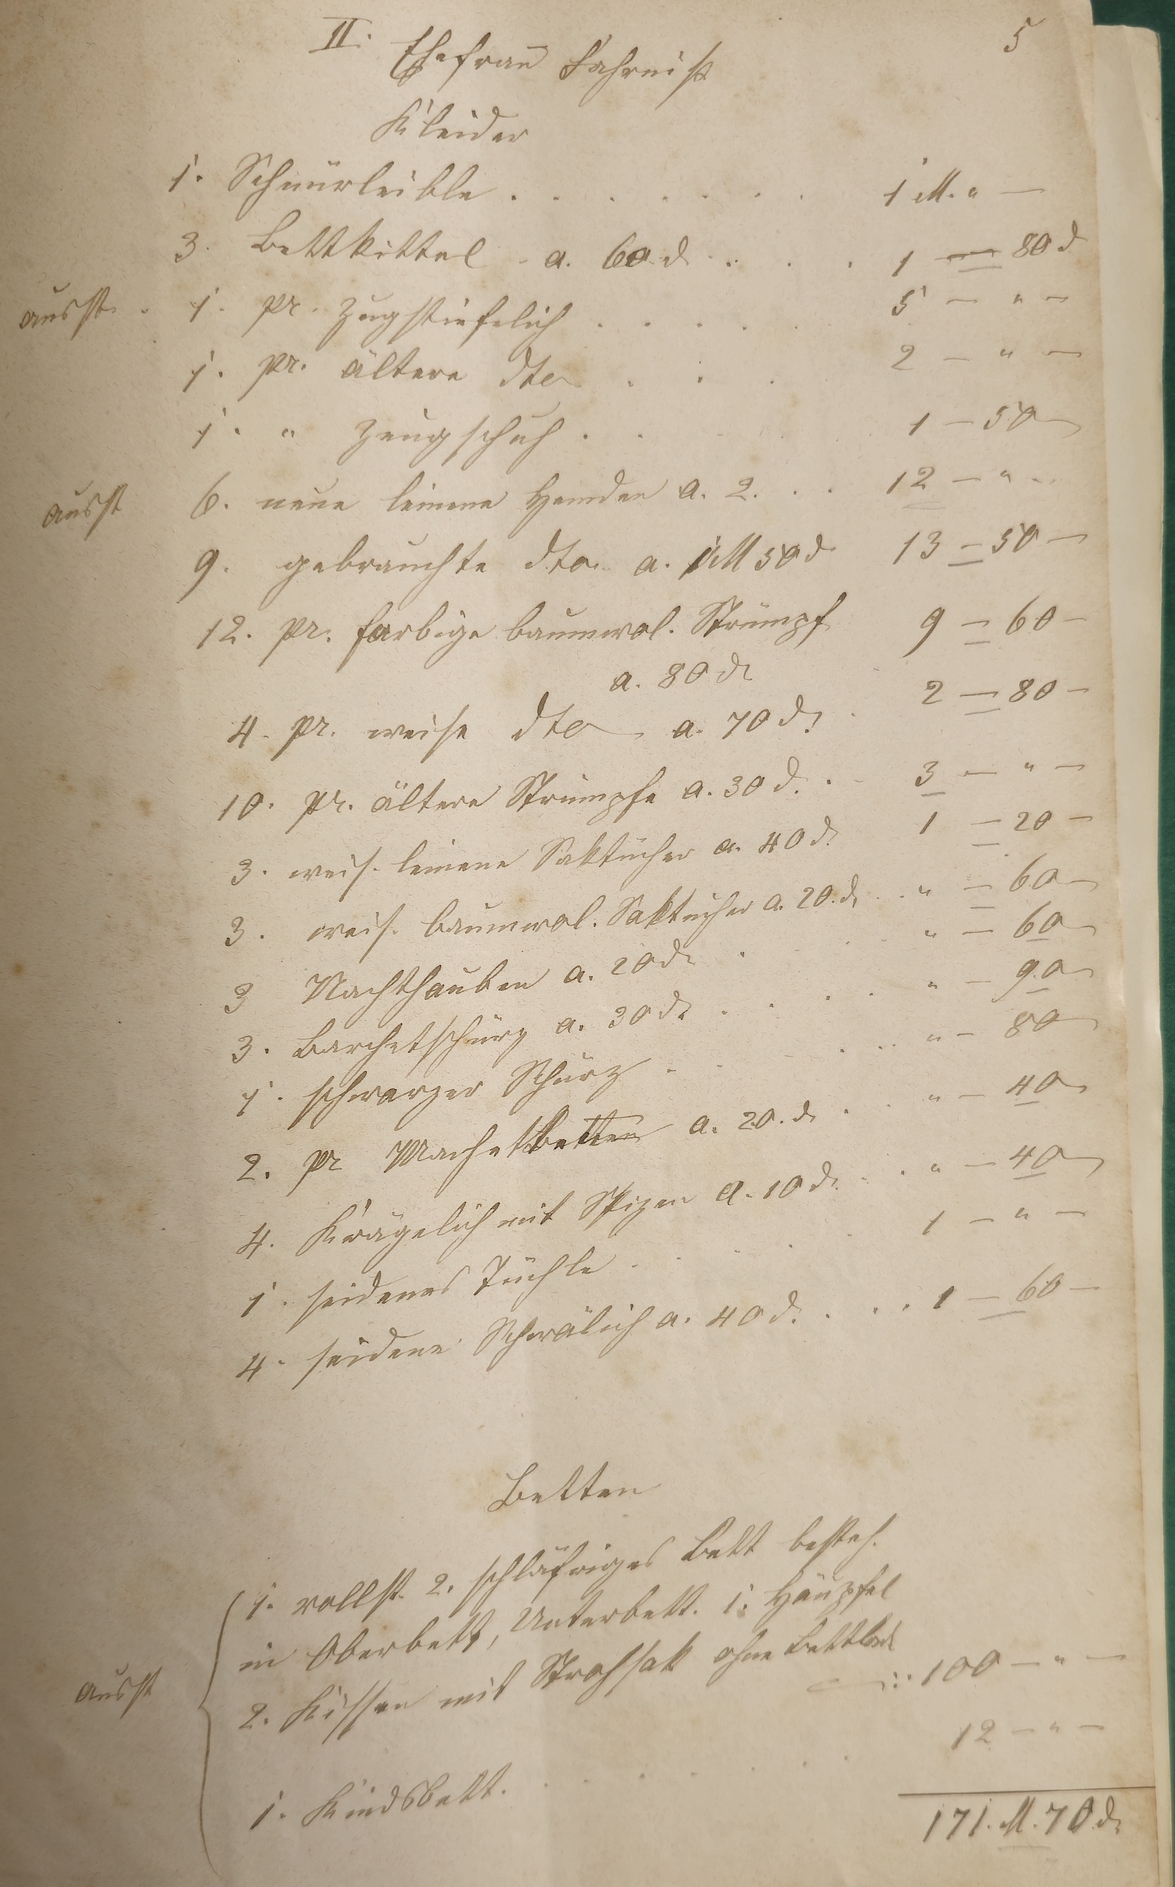 5
II. Ehefrau Fahrniß
Kleider
1. Schnürleible . . . . . . . 1 M. " —
3. Bettkittel a. 60 d . . . 1 — 80 d
ausst. 1. pr. Zugstiefelich . . . . . 5 — " —
1. pr. ältere dto . . . 2 — " —
1. " Zeugschuh . . 1 — 50
ausst 6. neue leinene Hemden a. 2. . . 12 — " —
9. gebrauchte dto. a. 1 M 50 d 13 — 50 —
12. pr. farbige baumwol. Strümpf 9 — 60 —
a. 80 d
4. pr. weise dto a. 70 d. 2 — 80 —
10. pr. ältere Strümpfe a. 30 d. . 3 — " —
3. weis. leinene Saktücher a. 40 d. 1 — 20 —
3. weis. baumwol. Saktücher a. 20. d. . " — 60 —
3 Nachthauben a. 20 d. . " — 60
3. Barchetschürz a. 30 d. . . . . " — 90
1. schwarzer Schurz . . . . . " — 80
2. pr a. 20. d. . . " — 40
4. Krägelich mit Spizen a. 10 d. . . " — 40
1. seidenes Tüchle . . . . 1 — " —
4. seidene Schwälich a. 40 d. . . . 1 — 60 —
Betten
1. vollst. 2. schläfriges Bett besteh.
in Oberbett, Unterbett. 1. Häupfel
ausst 2. Kissen mit Strohsak ohne Bettlad 100 — " —
1. Kindsbett. . . . . . . . 12 — " —
171. M. 70 d.